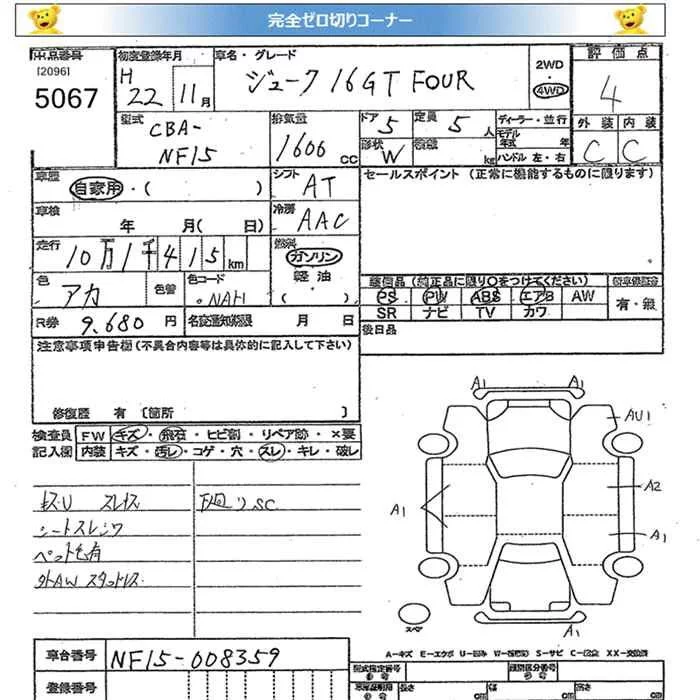 完全ゼロ切りコーナー
出品番号 初度登録年月 車名・グレード 2WD 評価点
[2096] H 4WD
5067 22 11月 ジューク 16GT FOUR 4
型式 排気量 ドア 5 定員 5人 ディーラー・並行 外装 内装
CBA- モデル年式 年
NF15 1600 CC 形状 W 積載 kg ハンドル 左・右 C C
車歴 シフト セールスポイント (正常に機能するものに限ります)
自家用・( ) AT
車検 冷房
年 月( 日) AAC
走行 10万1千415km 燃料 ガソリン
軽油
色 色替 色コード ( ) 装備品 (純正品に限り○をつけてください)
アカ NAH PS PW ABS エアB AW 有・無
SR ナビ TV カワ
R券 9,680円 名変通知期限 月 日 後日品
注意事項申告欄(不具合内容等は具体的に記入して下さい)
修復歴 有 [箇所 ]
検査員 FW キズ・飛石・ヒビ割・リペア跡・×要
記入欄 内装 キズ・汚レ・コゲ・穴・スレ・キレ・破レ
キズU スレイス 下廻りSC
シートスレシワ
ペット毛有
外AW スタッドレス
A1 A1
AU1
A1 A2
A1
スペア A1
A-キズ E-エクボ U-凹み W-波 S-サビ C-腐食 XX-交換済
車台番号 NF15-008359 型式指定番号 類別区分番号
登録番号 長さ 幅 高さ